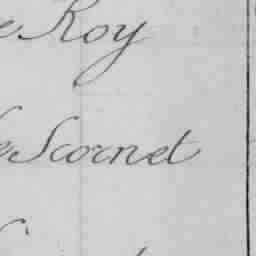 e Roy
e Scornet